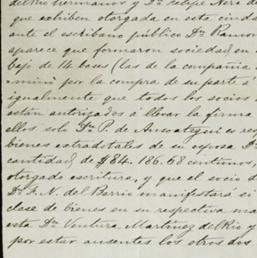 del Rio hermanos y Dn Felipe Nero de
que exhiben otorgada en esta ciudad
ante el escribano público Dn Ramon
aparece que formaron sociedad en
bajo de 14 bases (las de la compañia
mini por la compra de su parte
igualmente que todos los socios
estan autorizados a llevar la firma
ellos solo Dn P. de Ansoategui es res
bienes extradotales de su esposa Da
cantidad de $84.186.68 centimos
otorgado escritura, y que el socio d
Dn F. N. del Barrio manifestará si
clase de bienes en su respectiva ma
esta Dn Ventura Martinez del Rio y
por estar ausentes los otros dos